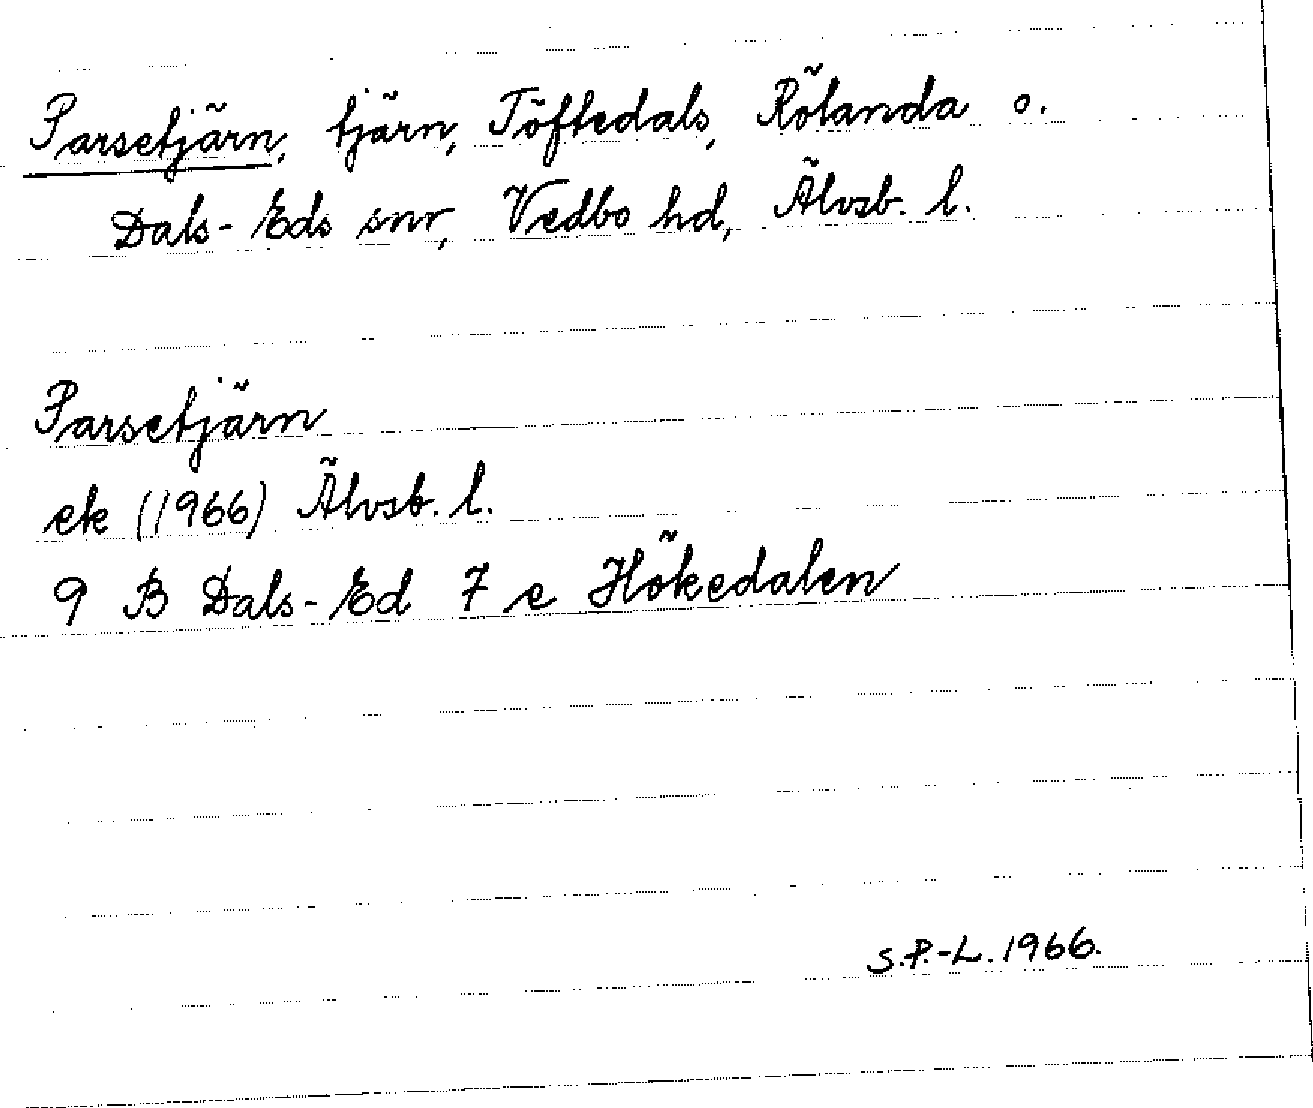 Parsetjärn, tjärn, Töftedals, Rölanda o.
Dals-Eds snr, Vedbo hd, Älvsb. l.
Parsetjärn
ek (1966) Älvsb. l.
9 B Dals-Ed 7 e Hökedalen
S.P.-L. 1966.